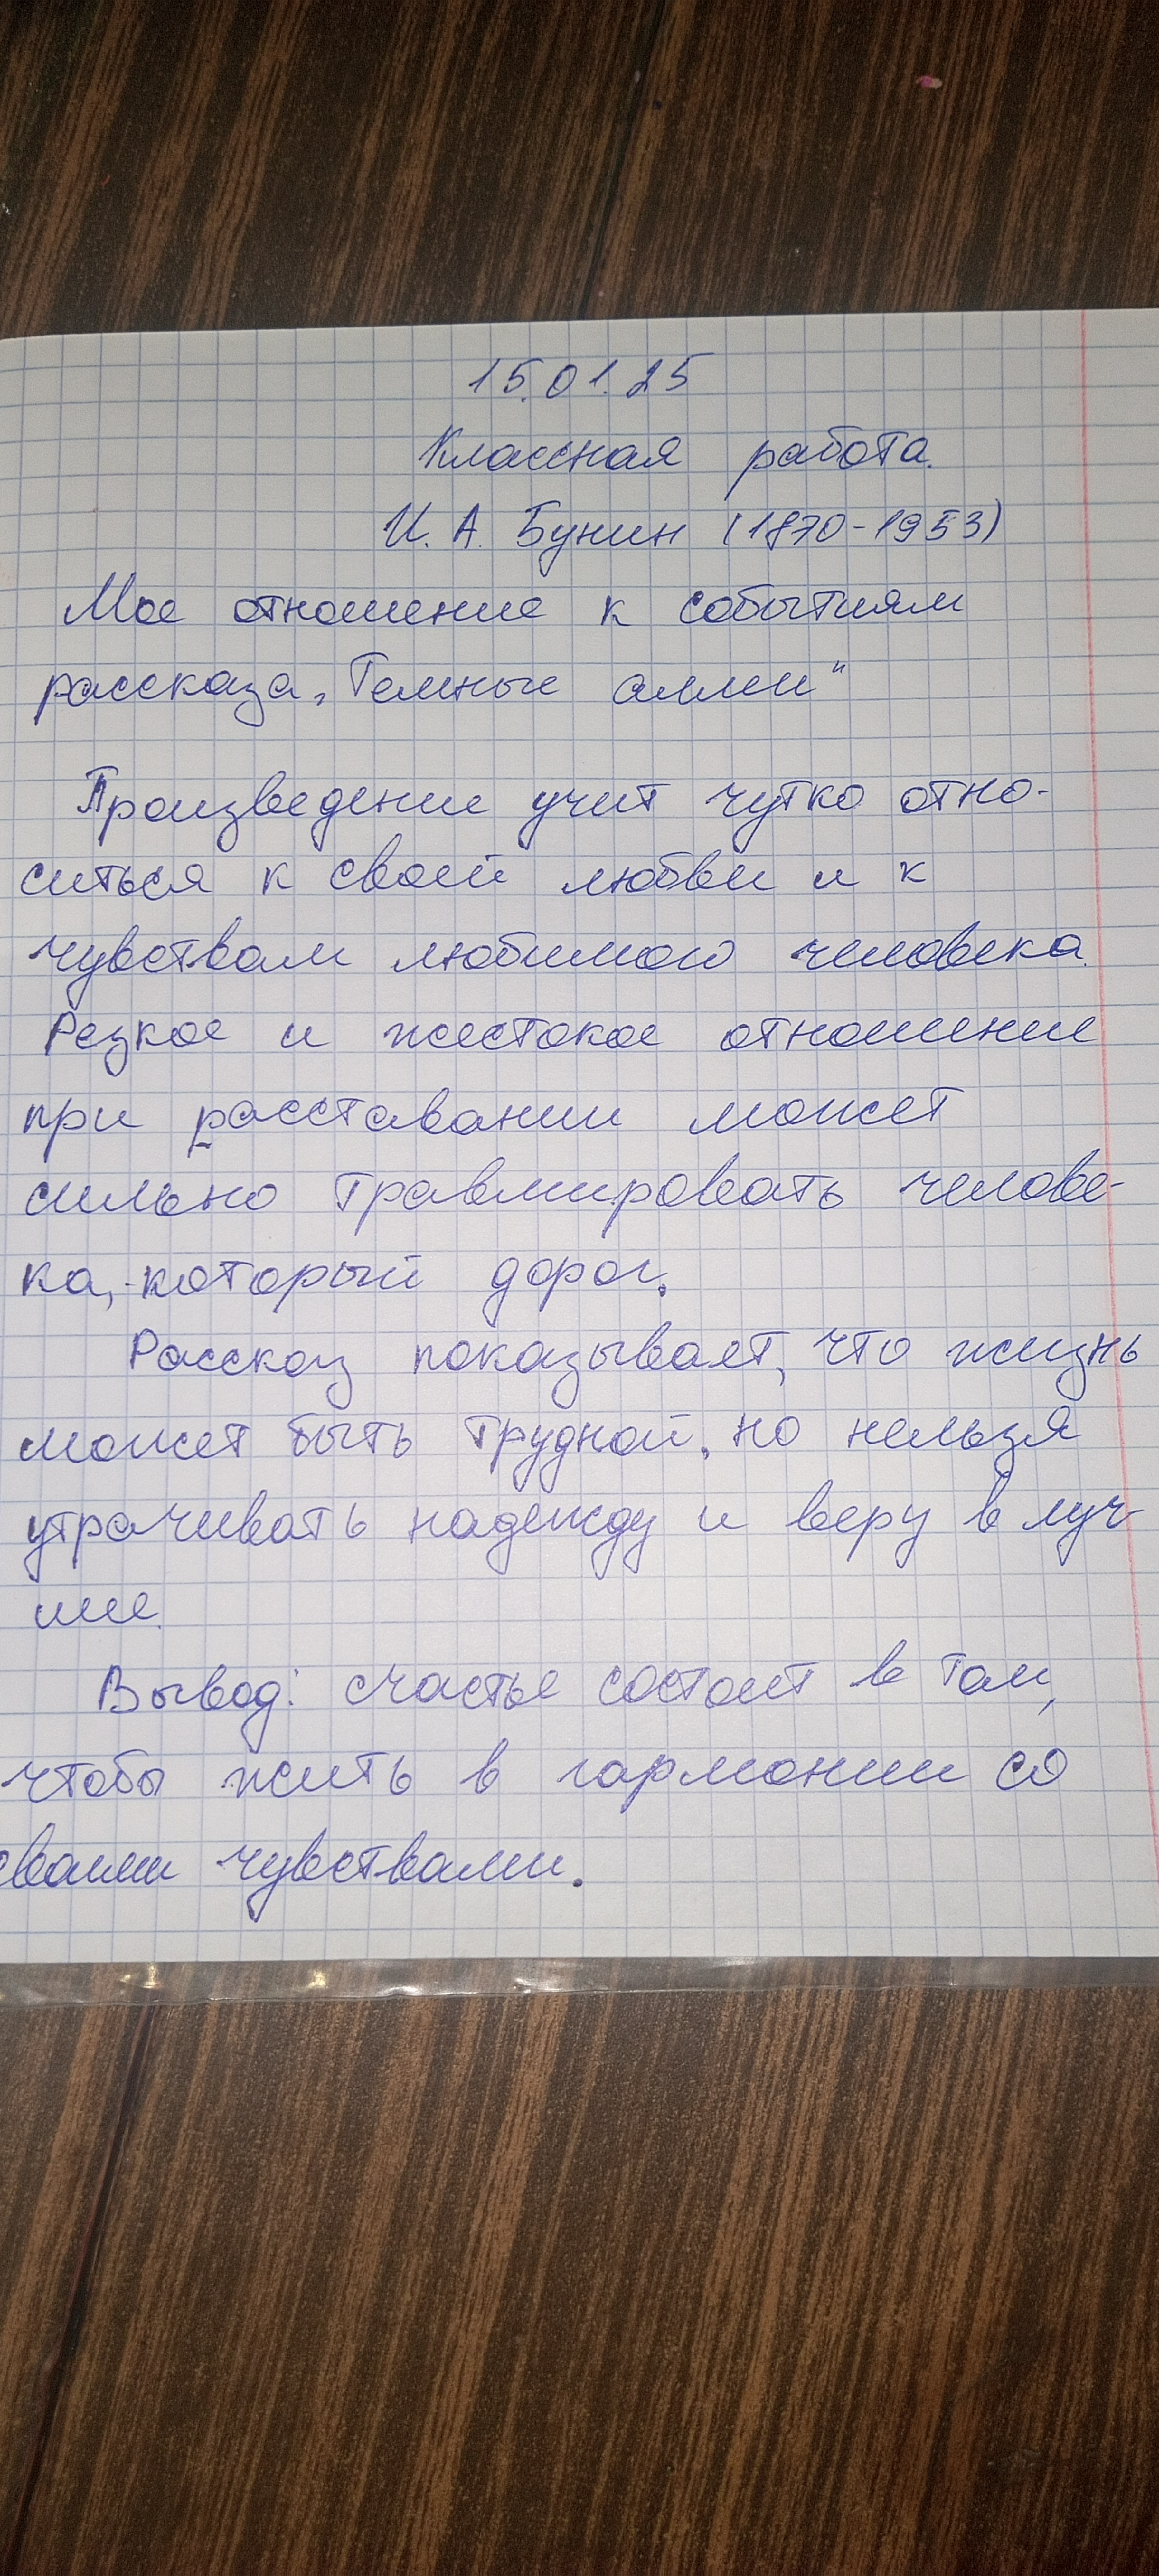 15.01.25
Классная работа.
И. А. Бунин (1870-1953)
Мое отношение к событиям
рассказа „Темные аллеи"
Произведение учит чутко отно-
ситься к своей любви и к
чувствам любимого человека.
Резкое и жестокое отношение
при расставании может
сильно травмировать челове-
ка, который дорог.
Рассказ показывает, что жизнь
может быть трудной, но нельзя
утрачивать надежду и веру в луч-
шее.
Вывод: счастье состоит в том,
чтобы жить в гармонии со
своими чувствами.